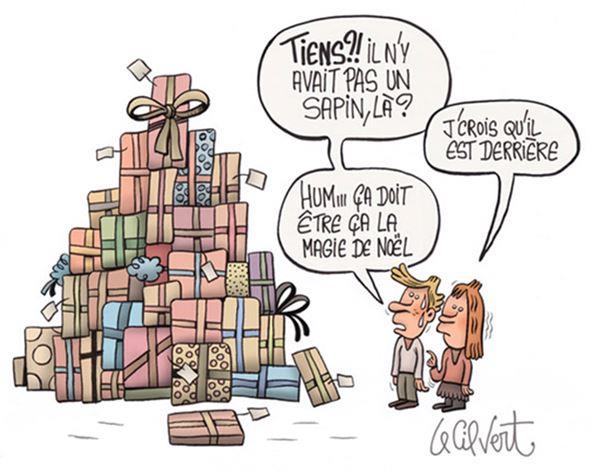 TIENS?! IL N'Y
AVAIT PAS UN
SAPIN, LÀ?
J'CROIS QU'IL
EST DERRIÈRE
HUM... ÇA DOIT
ÊTRE ÇA LA
MAGIE DE NOËL